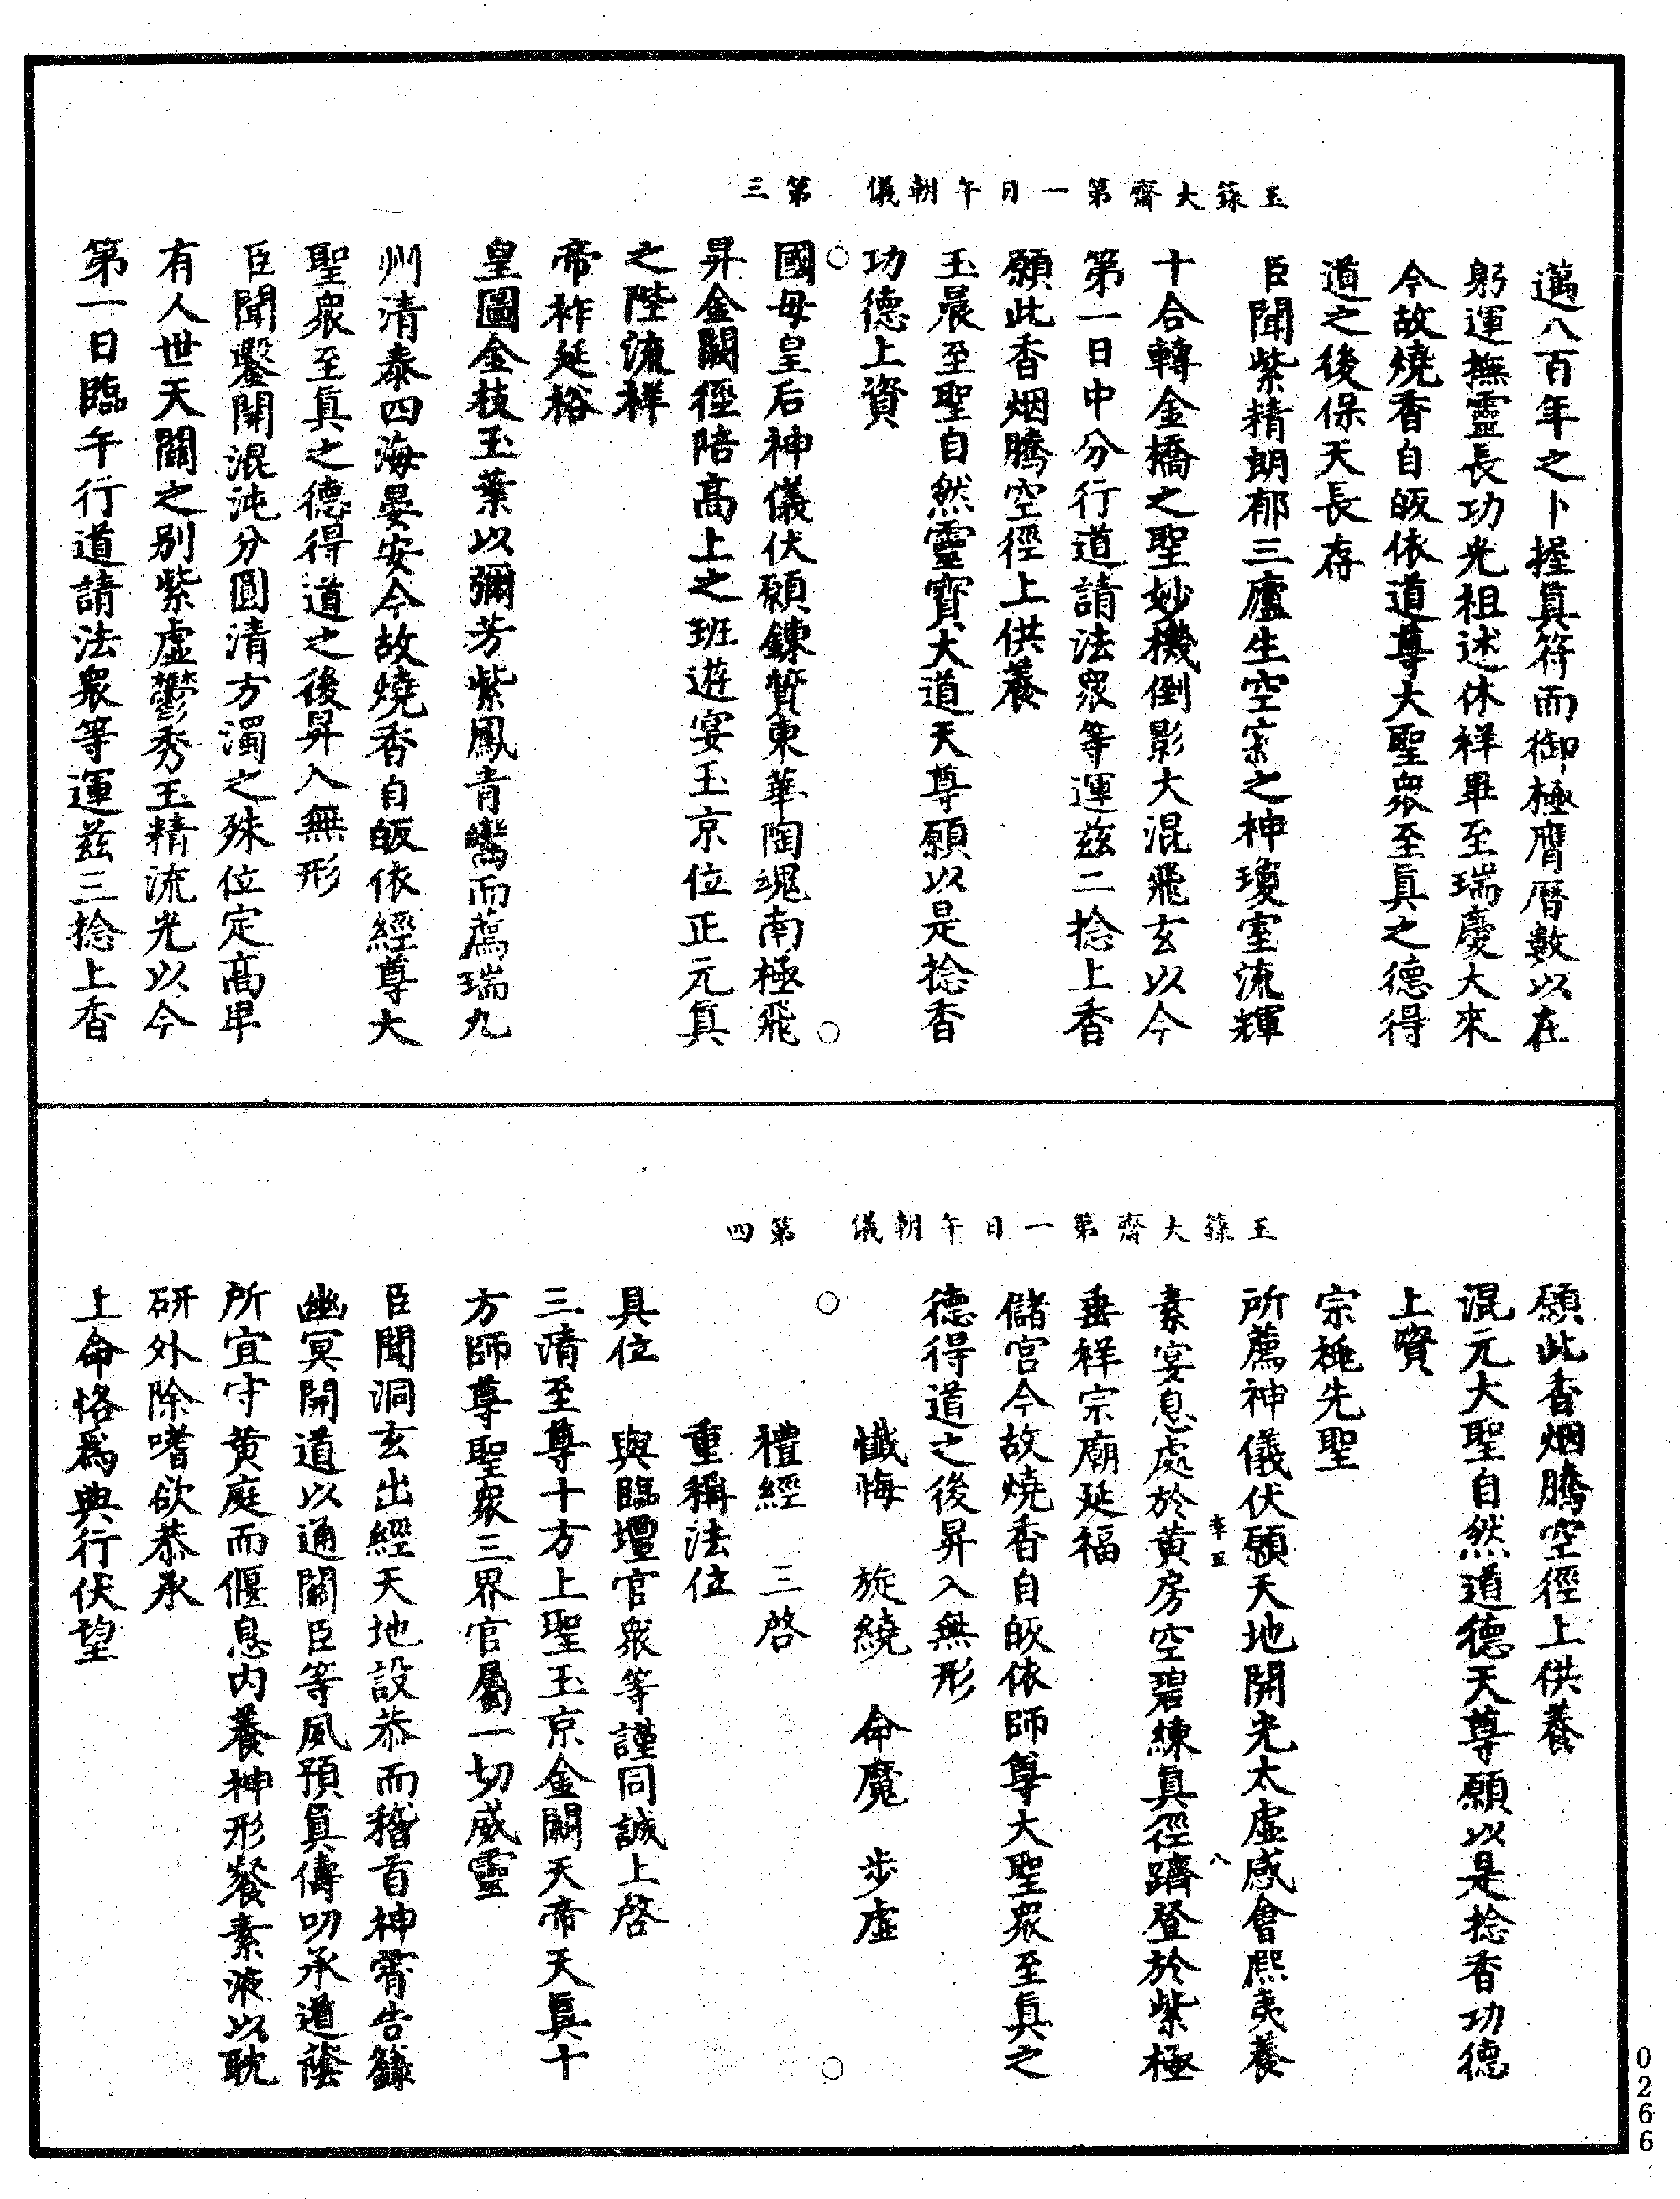 玉籙大齋第一日午朝儀　第三
邁八百年之卜握眞符而御極膺曆數以在
躬運撫靈長功光祖述休祥畢至瑞慶大來
今故燒香自皈依道尊大聖衆至眞之德得
道之後保天長存
臣聞紫精朗郁三廬生空宗之神瓊室流輝
十合轉金橋之聖妙機倒影大混飛玄以今
第一日中分行道請法衆等運兹二捻上香
願此香烟騰空徑上供養
玉晨至聖自然靈寶大道天尊願以是捻香
功德上資
國母皇后神儀伏願鍊質東華陶魂南極飛
昇金闕徑陪高上之班遊宴玉京位正元眞
之陛流祥
帝祚延裕
皇圖金枝玉葉以彌芳紫鳳青鸞而薦瑞九
州清泰四海晏安今故燒香自皈依經尊大
聖衆至眞之德得道之後昇入無形
臣聞鑿開混沌分圓清方濁之殊位定高卑
有人世天關之别紫虛鬱秀玉精流光以今
第一日臨午行道請法衆等運兹三捻上香
玉籙大齋第一日午朝儀　第四
願此香烟騰空徑上供養
混元大聖自然道德天尊願以是捻香功德
上資
宗祧先聖
所薦神儀伏願天地開光太虛感會熙夷養
素宴息處於黄房空碧練眞徑躋登於紫極
垂祥宗廟延福
儲宮今故燒香自皈依師尊大聖衆至眞之
德得道之後昇入無形
懴悔　旋繞　命魔　步虛
禮經　三啓
重稱法位
具位　與臨壇官衆等謹同誠上啓
三清至尊十方上聖玉京金闕天帝天眞十
方師尊聖衆三界官屬一切威靈
臣聞洞玄出經天地設恭而稽首神霄告籙
幽冥開道以通關臣等夙預眞儔叨承道蔭
所宜守黄庭而偃息内養神形餐素液以耽
研外除嗜欲恭承
上命恪爲典行伏望
0266